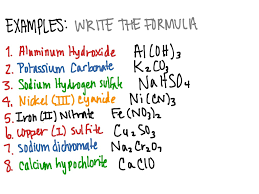 EXAMPLES: WRITE THE FORMULA
1. Aluminum Hydroxide Al(OH)₃
2. Potassium Carbonate K₂CO₃
3. Sodium Hydrogen sulfate NaHSO₄
4. Nickel (III) cyanide Ni(CN)₃
5. Iron (II) Nitrate Fe(NO₃)₂
6. Copper (I) sulfite Cu₂SO₃
7. Sodium dichromate Na₂Cr₂O₇
8. Calcium hypochlorite CaClO